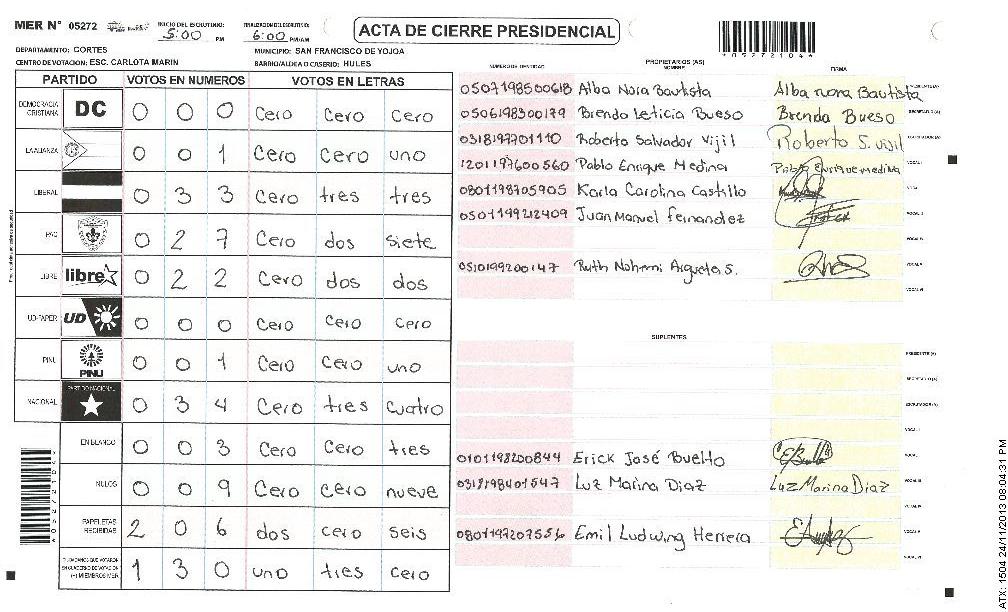 MER N° 05272
INICIO DEL ESCRUTINIO:
5:00 PM
FINALIZACION DEL ESCRUTINIO:
6:00 PM/AM
ACTA DE CIERRE PRESIDENCIAL
*05272104*
DEPARTAMENTO: CORTES
MUNICIPIO: SAN FRANCISCO DE YOJOA
CENTRO DE VOTACION: ESC. CARLOTA MARIN
BARRIO/ALDEA O CASERIO: HULES
PARTIDO VOTOS EN NUMEROS VOTOS EN LETRAS
DEMOCRACIA CRISTIANA DC 0 0 0 Cero Cero Cero
LA ALIANZA 0 0 1 Cero Cero uno
LIBERAL 0 3 3 Cero tres tres
PAC 0 2 7 Cero dos siete
LIBRE libre 0 2 2 Cero dos dos
UD-FAPER UD 0 0 0 Cero Cero Cero
PINU PINU 0 0 1 Cero Cero uno
NACIONAL PARTIDO NACIONAL 0 3 4 Cero tres Cuatro
EN BLANCO 0 0 3 Cero Cero tres
NULOS 0 0 9 Cero Cero nueve
PAPELETAS RECIBIDAS 2 0 6 dos cero seis
CIUDADANOS QUE VOTARON EN CUADERNO DE VOTACION (+) MIEMBROS MER 1 3 0 uno tres cero
NUMERO DE IDENTIDAD
PROPIETARIOS (AS)
NOMBRE
FIRMA
0507198500618 Alba Nora Bautista Alba nora Bautista
0506198300179 Brenda Leticia Bueso Brenda Bueso SECRETARIO (A)
0318197701110 Roberto Salvador Vijil Roberto S. vijil
1201197600560 Pablo Enrique Medina Pablo Enrique medina VOCAL I
0801198705905 Karla Carolina Castillo
0501199212409 Juan Manuel Fernandez
0510199200147 Ruth Nohemi Argueta S.
VOCAL VI
SUPLENTES
PRESIDENTE (A)
SECRETARIO (A)
ESCRUTADOR (A)
VOCAL I
0101198200844 Erick José Buelto
0318198401547 Luz Marina Diaz Luz Marina Diaz
0801197207556 Emil Ludwing Herrera
VOCAL VI
ATX: 1504 24/11/2013 08:04:31 PM